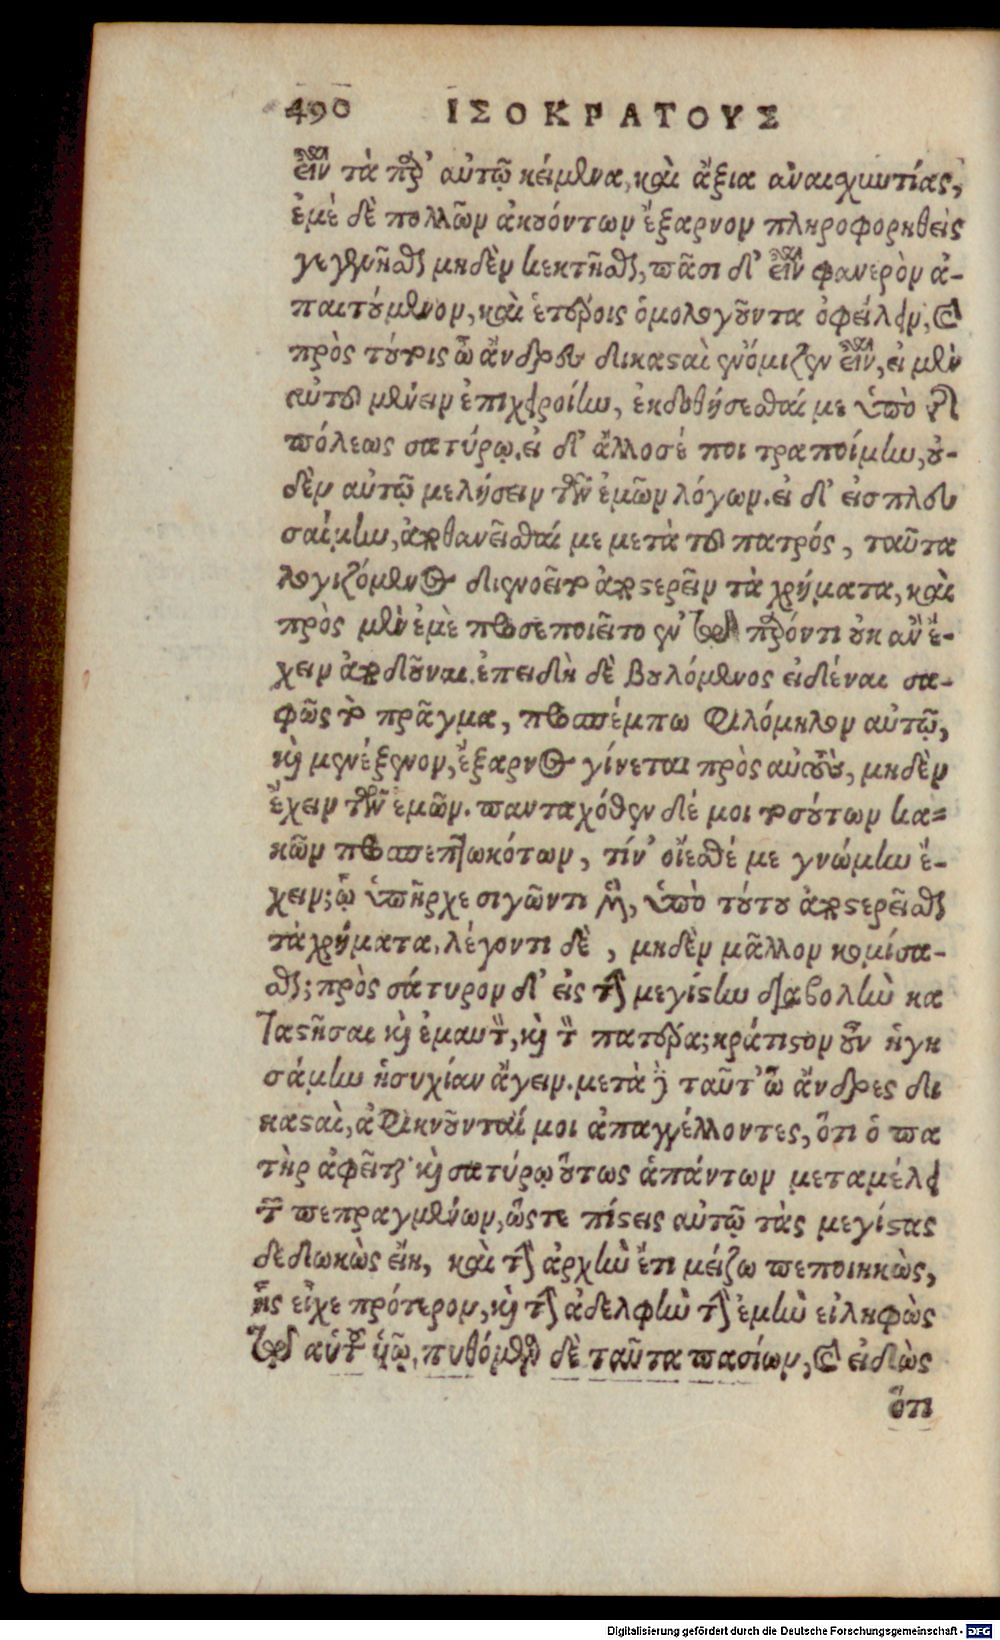 490 ΙΣΟΚΡΑΤΟΥΣ
εἶναι τὰ παρ' αὐτῷ κείμενα, καὶ ἄξια ἀναισχυντίας,
ἐμὲ δὲ πολλῶν ἀκουόντων ἔξαρνον πληροφορηθεὶς
γεγενῆσθαι μηδὲν κεκτῆσθαι, πᾶσι δ' εἶναι φανερὸν ἀ-
παιτούμενον, καὶ ἑτέροις ὁμολογοῦντα ὀφείλειν, καὶ
πρὸς τούτοις ὦ ἄνδρες δικασαὶ ἐνόμιζεν εἶναι, εἰ μὲν
αὐτοῦ μένειν ἐπιχειροίην, ἐκδοθήσεσθαί με ὑπὸ τῆς
πόλεως σατύρῳ. εἰ δ' ἄλλοσέ ποι τραποίμην, οὐ-
δὲν αὐτῷ μελήσειν τῶν ἐμῶν λόγων. εἰ δ' εἰσπλευ
σαίμην, ἀποθανεῖσθαί με μετὰ τοῦ πατρός, ταῦτα
λογιζόμενος διενοεῖτο ἀποστερεῖν τὰ χρήματα, καὶ
πρὸς μὲν ἐμὲ προσεποιεῖτο ἐν τῷ παρόντι οὐκ ἂν ἔ-
χειν ἀποδοῦναι. ἐπειδὴ δὲ βουλόμενος εἰδέναι σα-
φῶς τὸ πρᾶγμα, προσπέμπω Φιλόμηλον αὐτῷ,
καὶ μενέξενον, ἔξαρνος γίνεται πρὸς αὐτοὺς, μηδὲν
ἔχειν τῶν ἐμῶν. πανταχόθεν δέ μοι τοσούτων κα-
κῶν προσπεπτωκότων, τίν' οἴεσθέ με γνώμην ἔ-
χειν; ᾧ ὑπῆρχε σιγῶντι μὲν, ὑπὸ τούτου ἀποστερεῖσθαι
τὰ χρήματα, λέγοντι δὲ, μηδὲν μᾶλλον κομίσα-
σθαι; πρὸς σάτυρον δ' εἰς τὴν μεγίστην διαβολὴν κα
ταστῆσαι καὶ ἐμαυτὸν, καὶ τὸν πατέρα; κράτιστον οὖν ἡγη
σάμην ἡσυχίαν ἄγειν. μετὰ δὲ ταῦτ' ὦ ἄνδρες δι
κασταὶ, ἀφικνοῦνταί μοι ἀπαγγέλλοντες, ὅτι ὁ πα
τὴρ ἀφεῖται καὶ σατύρῳ οὕτως ἁπάντων μεταμέλει
τῶν πεπραγμένων, ὥστε πίστεις αὐτῷ τὰς μεγίστας
δεδωκὼς εἴη, καὶ τὴν ἀρχὴν ἔτι μείζω πεποιηκὼς,
ἧς εἶχε πρότερον, καὶ τὴν ἀδελφὴν τὴν ἐμὴν εἰληφὼς
τῷ αὑτοῦ ὑῷ. πυθόμενος δὲ ταῦτα πασίων, καὶ εἰδὼς
ὅτι
Digitalisierung gefördert durch die Deutsche Forschungsgemeinschaft - DFG